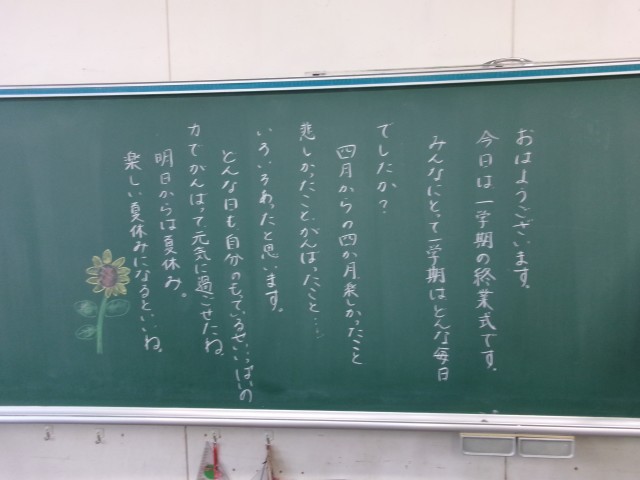 おはようございます。
今日は、一学期の終業式です。
みんなにとって一学期はどんな毎日
でしたか？
四月からの四か月楽しかったこと
悲しかったこと、がんばったこと…
いろいろあったと思います。
どんな日も自分のもっているせいいっぱいの
力でがんばって元気に過ごせたね。
明日からは夏休み。
楽しい夏休みになるといいね。